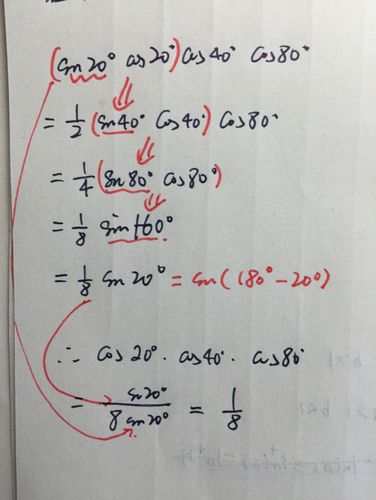 (sin20° cos20°) cos40° cos80°
= 1/2 (sin40° cos40°) cos80°
= 1/4 (sin80° cos80°)
= 1/8 sin160°
= 1/8 sin20° = sin(180°-20°)
∴ cos20° · cos40° · cos80°
= sin20° / 8 sin20° = 1/8